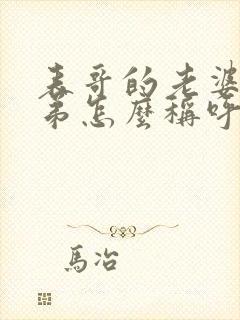 表哥的老婆
弟怎麼稱呼
馬冶